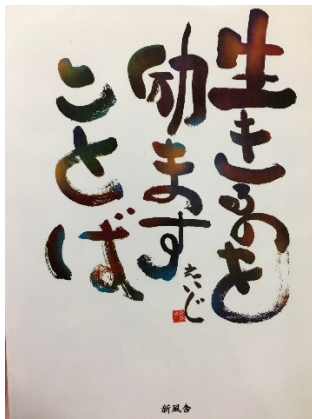 生きるを
励ます
ことば
新風舎